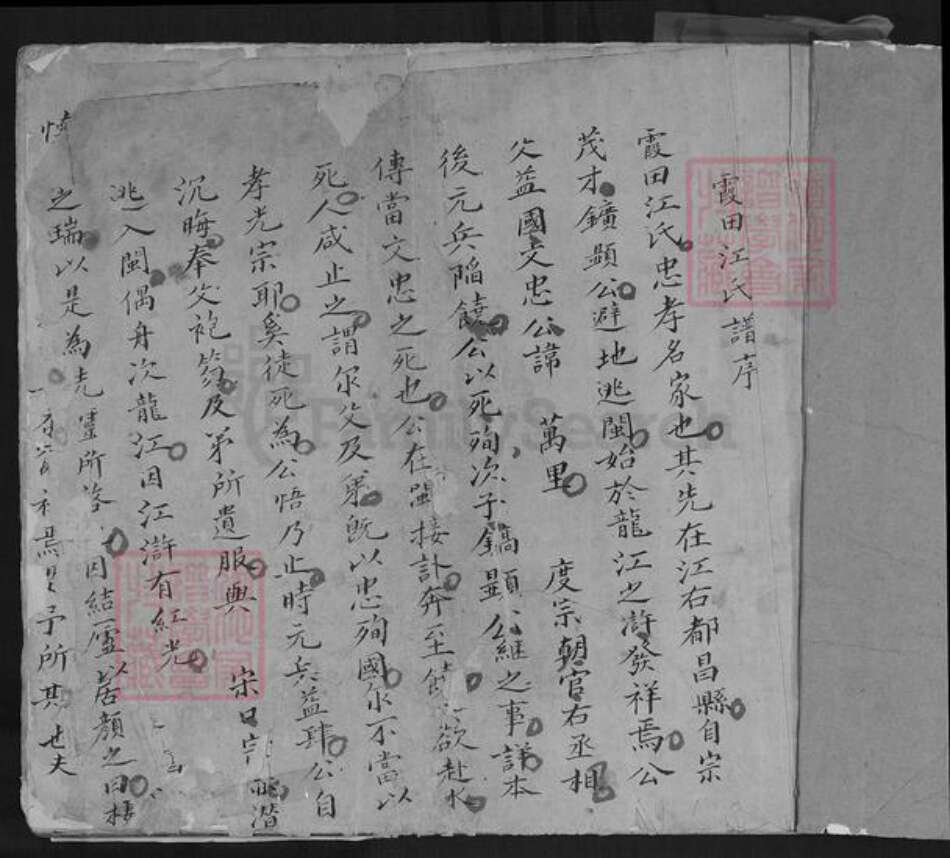 霞田江氏譜序
霞田江氏忠孝名家也其先在江右都昌縣自宗
茂才鑛顯公避地逃閩始於龍江之滸發祥焉公
父益國文忠公諱 萬里 度宗朝官右丞相
後元兵陷饒公以死殉次子鎬顯公繼之事詳本
傳當文忠之死也公在閩接訃奔至饒欲赴水
死人咸止之謂尔父及弟既以忠殉國尔不當以
孝光宗耶奚徒死為公悟乃止時元兵益肆公自
沉晦奉父袍笏及弟所遺服與 宋 潛
逃入閩偶舟次龍江因江滸有紅光
之瑞以是為先靈所咨因結廬以居顏之曰樓
焉 予所其
FamilySearch